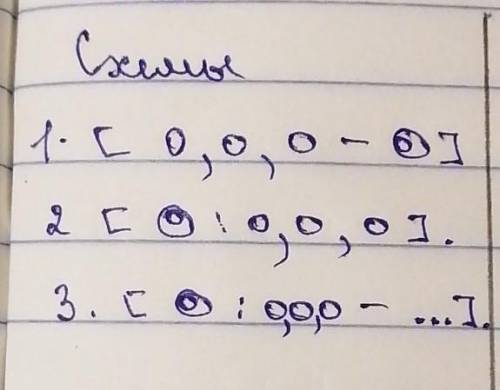 Схемы
1. [ О, О, О – ⊙ ]
2 [ ⊙ : О, О, О ].
3. [ ⊙ : О,О,О – ... ].